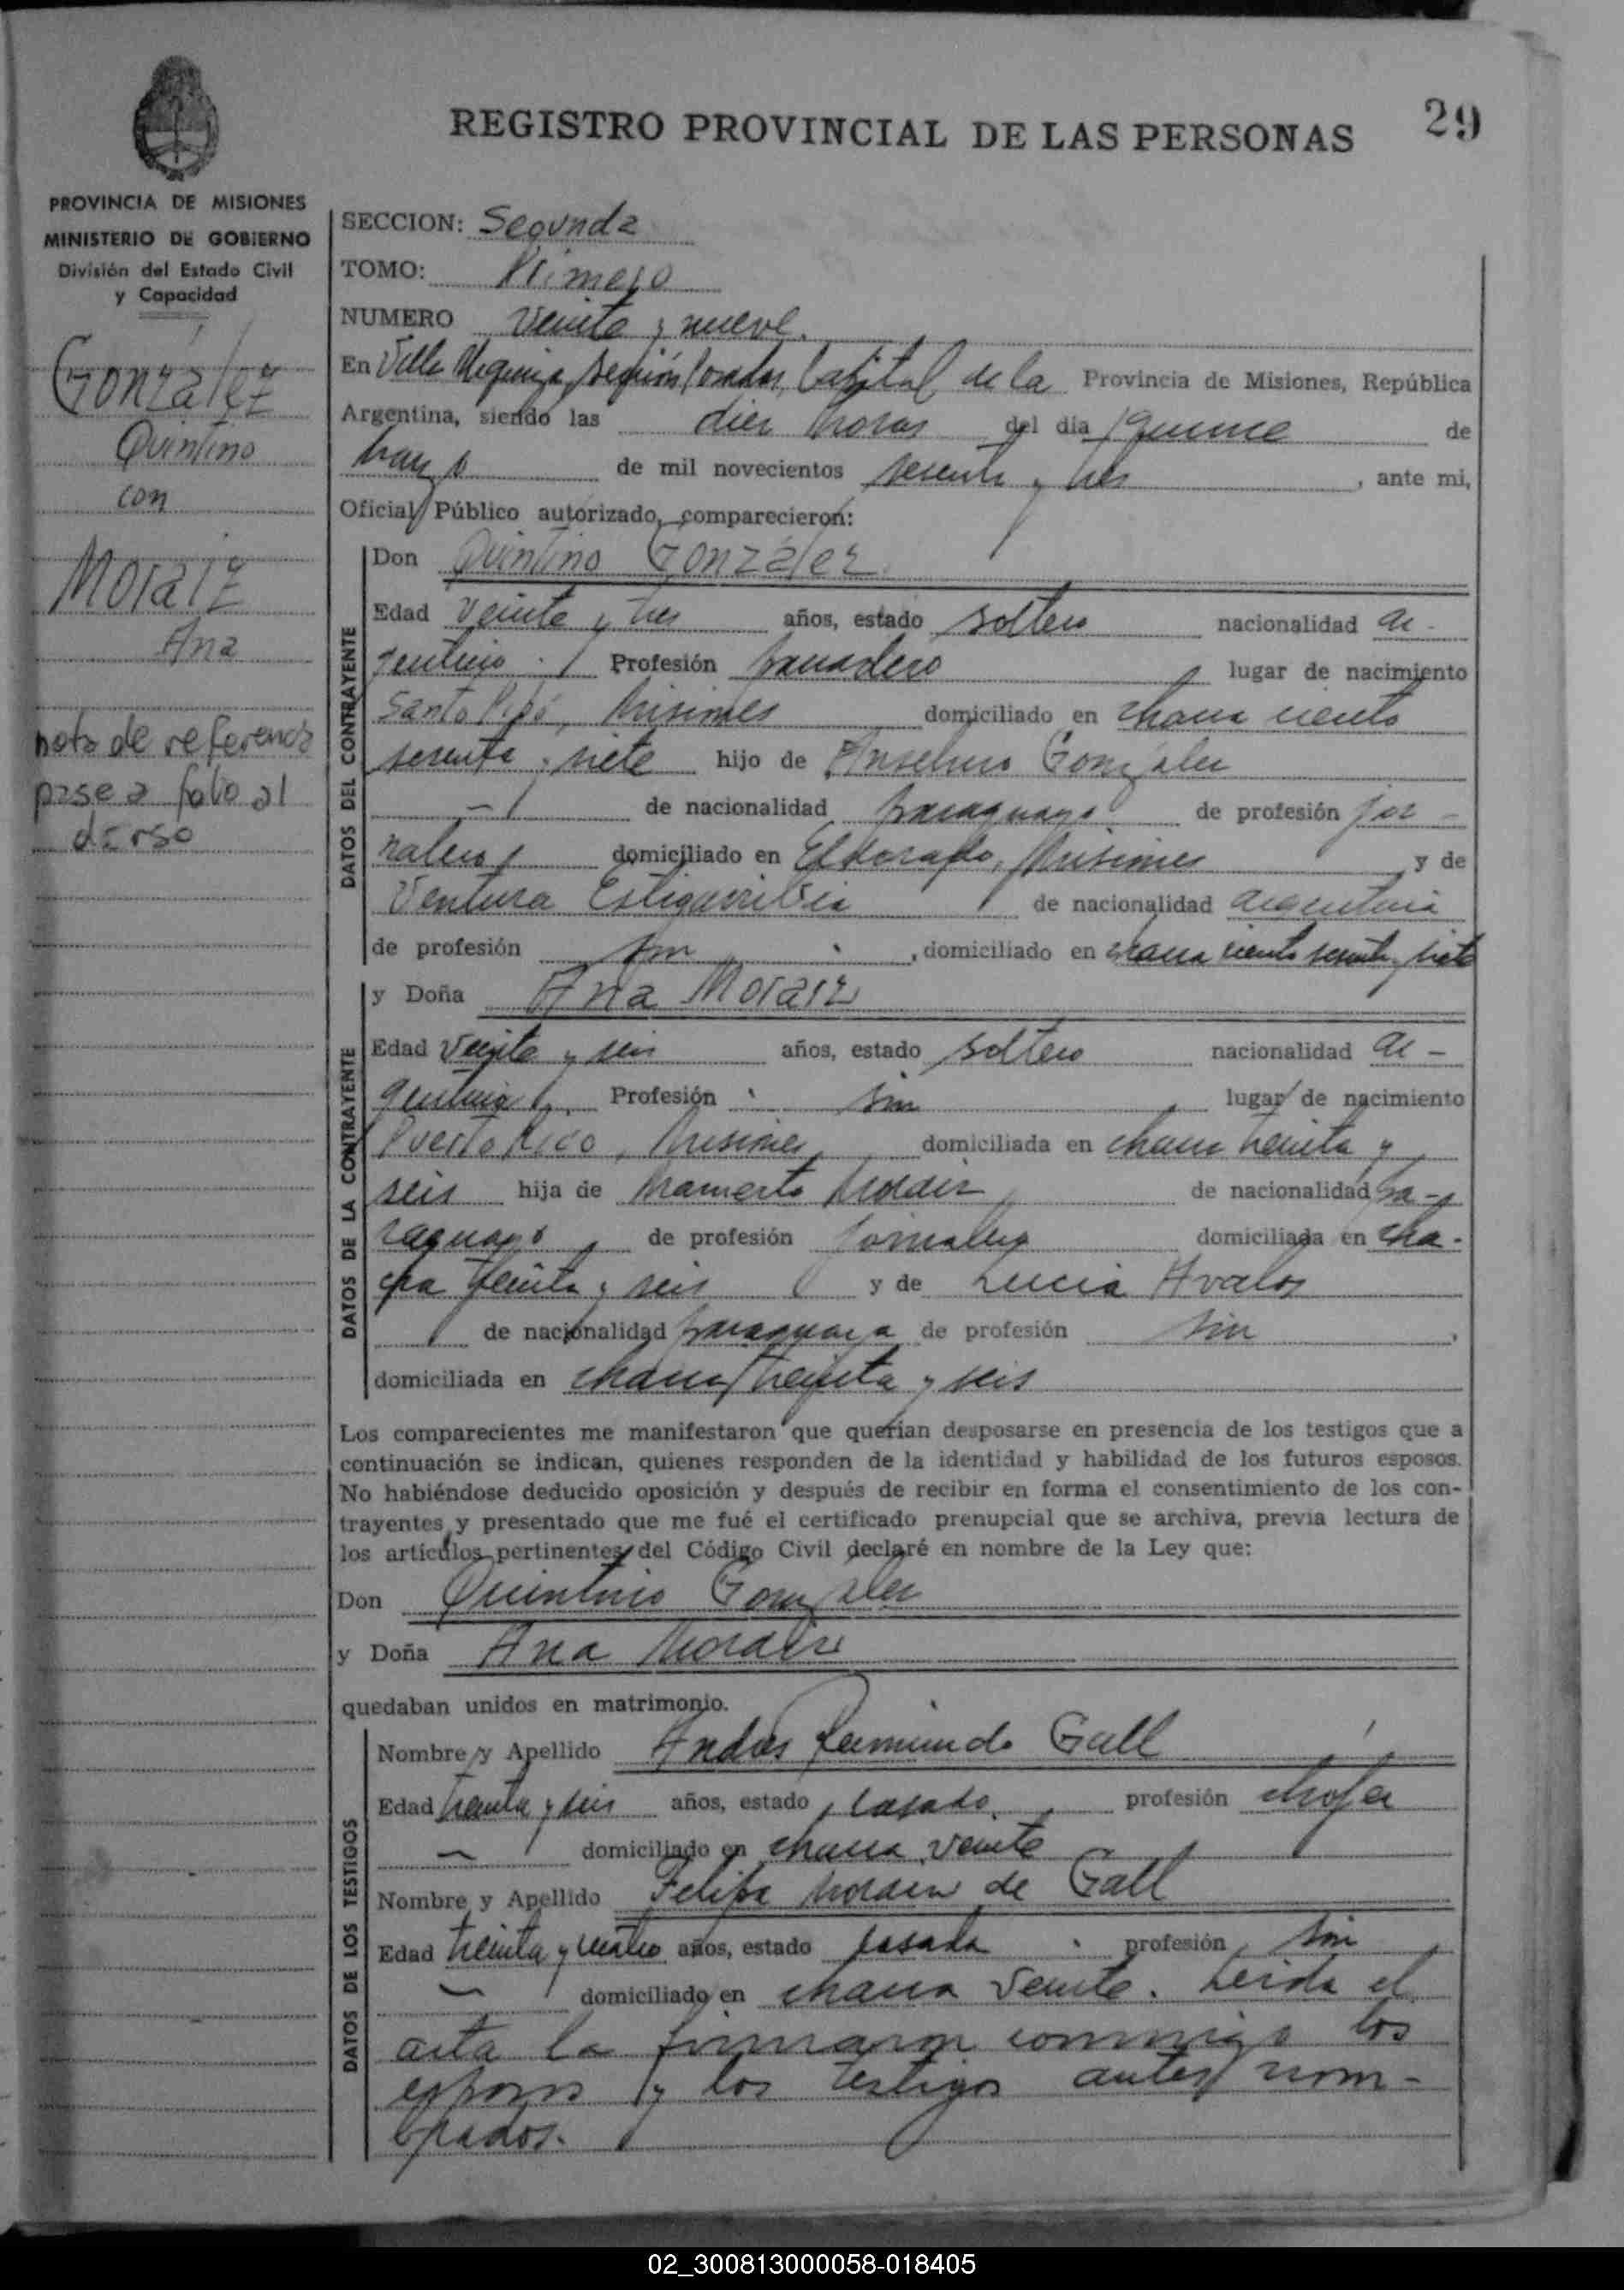 REGISTRO PROVINCIAL DE LAS PERSONAS
29
PROVINCIA DE MISIONES
MINISTERIO DE GOBIERNO
División del Estado Civil
y Capacidad
González
Quintino
con
Moraiz
Ana
nota de referencia
pase a folio al
dorso
SECCION: Segunda
TOMO: Primero
NUMERO veinte y nueve.
En Villa Urquiza, Capital de la Provincia de Misiones, República
Argentina, siendo las diez horas del día quince de
mayo de mil novecientos sesenta y tres, ante mi,
Oficial Público autorizado, comparecieron:
DATOS DEL CONTRAYENTE
Don Quintino González
Edad veinte y tres años, estado soltero nacionalidad ar-
gentino. Profesión panadero lugar de nacimiento
Santo Pipó, Misiones domiciliado en chacra ciento
sesenta y siete hijo de Anselmo González
de nacionalidad paraguayo de profesión jor-
nalero domiciliado en Eldorado, Misiones y de
Ventura Estigarribia de nacionalidad argentina
de profesión sin, domiciliado en chacra ciento sesenta y siete
DATOS DE LA CONTRAYENTE
y Doña Ana Moraiz
Edad veinte y seis años, estado soltero nacionalidad ar-
gentina. Profesión sin lugar de nacimiento
Puerto Rico, Misiones domiciliada en chacra treinta y
seis hija de Mamerto Moraiz de nacionalidad pa-
raguayo de profesión jornalero domiciliada en cha-
cra treinta y seis y de Lucia Avalos
de nacionalidad paraguaya de profesión sin,
domiciliada en chacra treinta y seis
Los comparecientes me manifestaron que querian desposarse en presencia de los testigos que a
continuación se indican, quienes responden de la identidad y habilidad de los futuros esposos.
No habiéndose deducido oposición y después de recibir en forma el consentimiento de los con-
trayentes y presentado que me fué el certificado prenupcial que se archiva, previa lectura de
los artículos pertinentes del Código Civil declaré en nombre de la Ley que:
Don Quintino González
y Doña Ana Moraiz
quedaban unidos en matrimonio.
DATOS DE LOS TESTIGOS
Nombre y Apellido Andres Raimundo Gall
Edad treinta y seis años, estado casado, profesión chofer
domiciliado en chacra veinte
Nombre y Apellido Felipa Moraiz de Gall
Edad treinta y cuatro años, estado casada profesión sin
domiciliado en chacra veinte. Leida el
acta la firmaron conmigo los
esposos y los testigos antes nom-
brados.
02_300813000058-018405